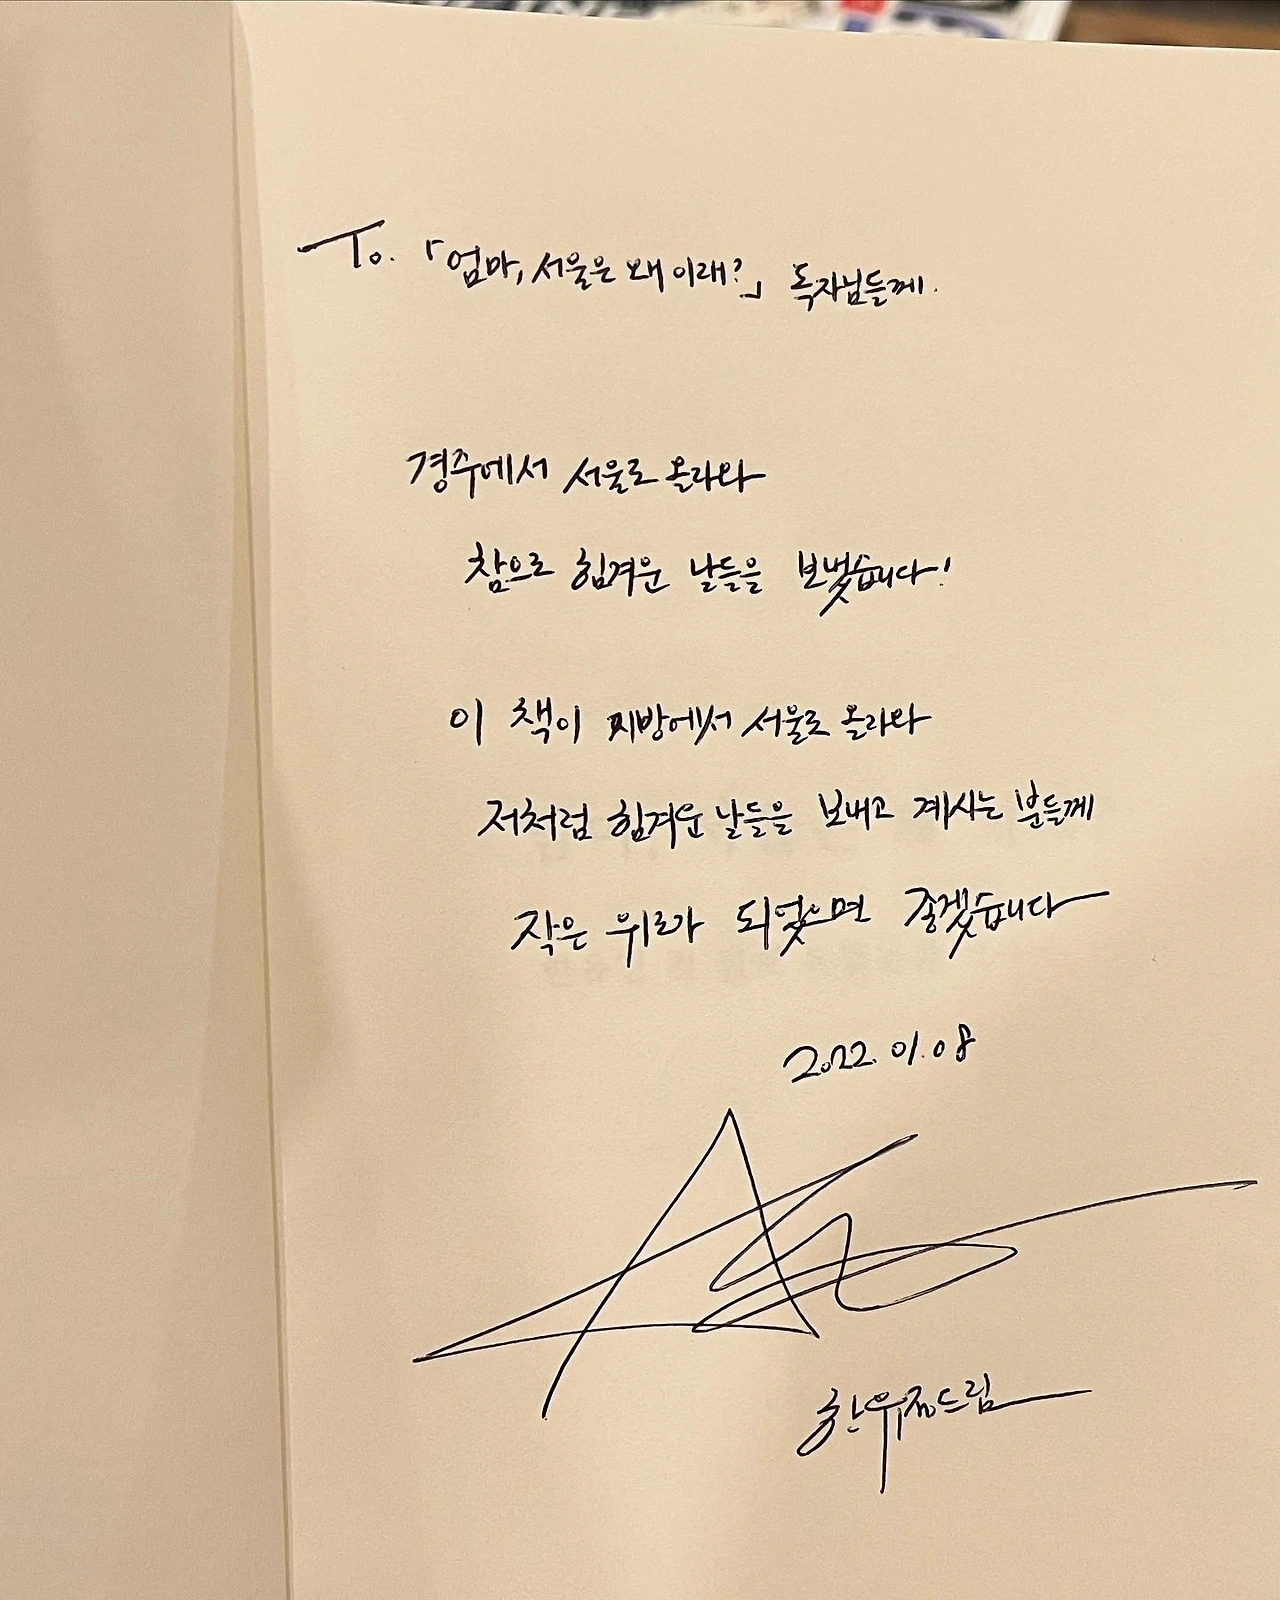 To. 「엄마, 서울은 왜 이래?」 독자님들께.
경주에서 서울로 올라와
참으로 힘겨운 날들을 보냈습니다!
이 책이 지방에서 서울로 올라와
저처럼 힘겨운 날들을 보내고 계시는 분들께
작은 위로가 되었으면 좋겠습니다
2022. 01. 08
드림